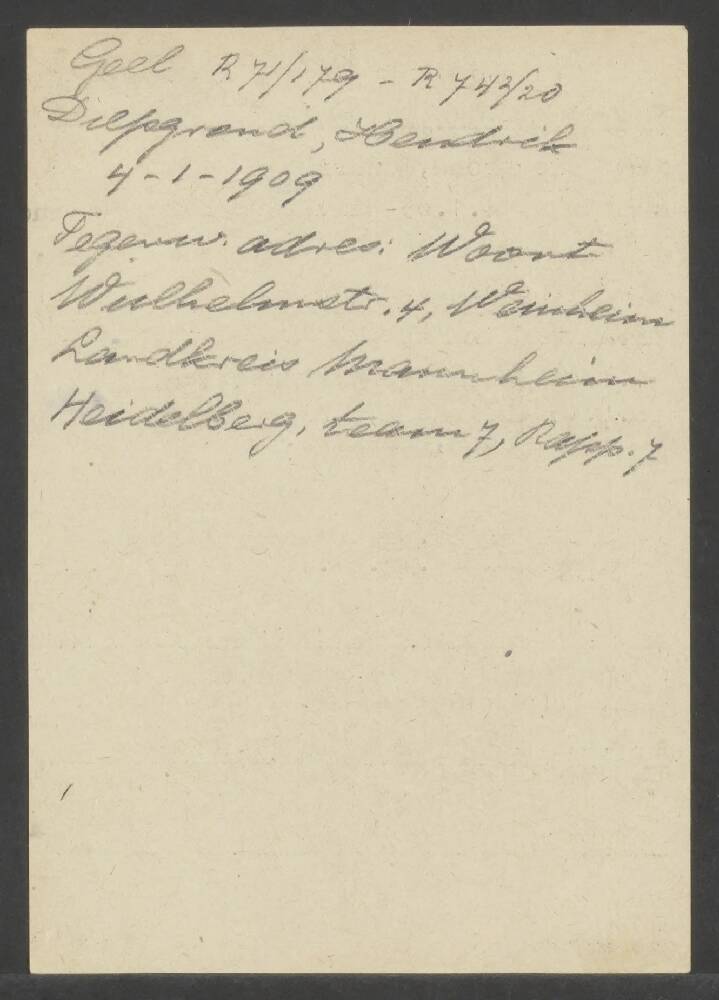 Geel R 71/179 - R 742/20
Diepgrond, Hendrik
4-1-1909
Tegenw. adres: Woont
Wilhelmstr. 4, Weinheim
Landkreis Mannheim
Heidelberg, team 7, Rapp. 7